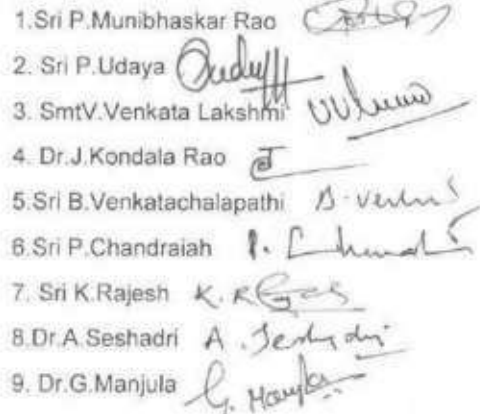 1.Sri P.Munibhaskar Rao
2. Sri P.Udaya
3. SmtV.Venkata Lakshmi
4. Dr.J.Kondala Rao
5.Sri B.Venkatachalapathi
6.Sri P.Chandraiah
7. Sri K.Rajesh
8.Dr.A.Seshadri A. Seshadri
9. Dr.G.Manjula G. Manjula